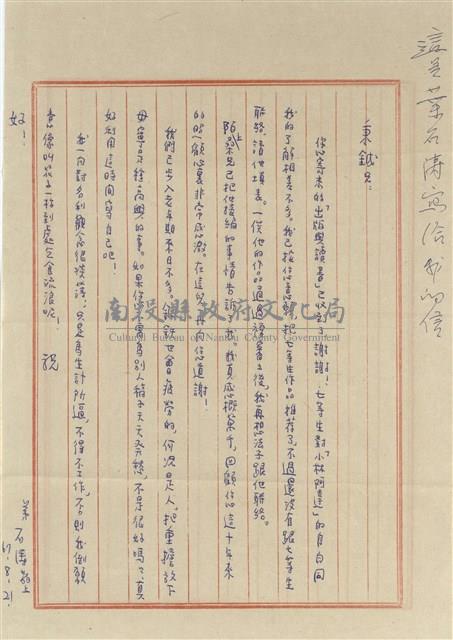 這是葉石濤寫給我的信
秉鉞兄:
您寄來的「出版與讀書」已收到了,謝謝!七等生對「小林阿達」的自白同
我的了解相差不多。我已按你意思把七等生作品推荐了,不過還沒有跟七等生
聯絡,請他填表。一俟他的作品通過審查之後,我再想法子跟他聯絡。
陌上桑兄已把他接編的事情告訴了我。我真感慨萬千,回顧你這十年來
的照顧心裏非常感激。在這兒再向你道謝!
我們已步入老年期來日不多,鋼鉄也會疲勞的,何況是人。把重擔放下
毋寧是種高興的事。如果你不要為別人稿子天天發愁,不是很好嗎?真
好利用這時間寫自己吧!
我一向對名利觀念很淡薄,只是為生計所逼,不得不工作,否則我倒願
意像叫花子一樣到處乞食流浪呢! 祝
好!
弟 石濤敬上
67.8.21.
南投縣政府文化局
Cultural Bureau of Nantou County Government